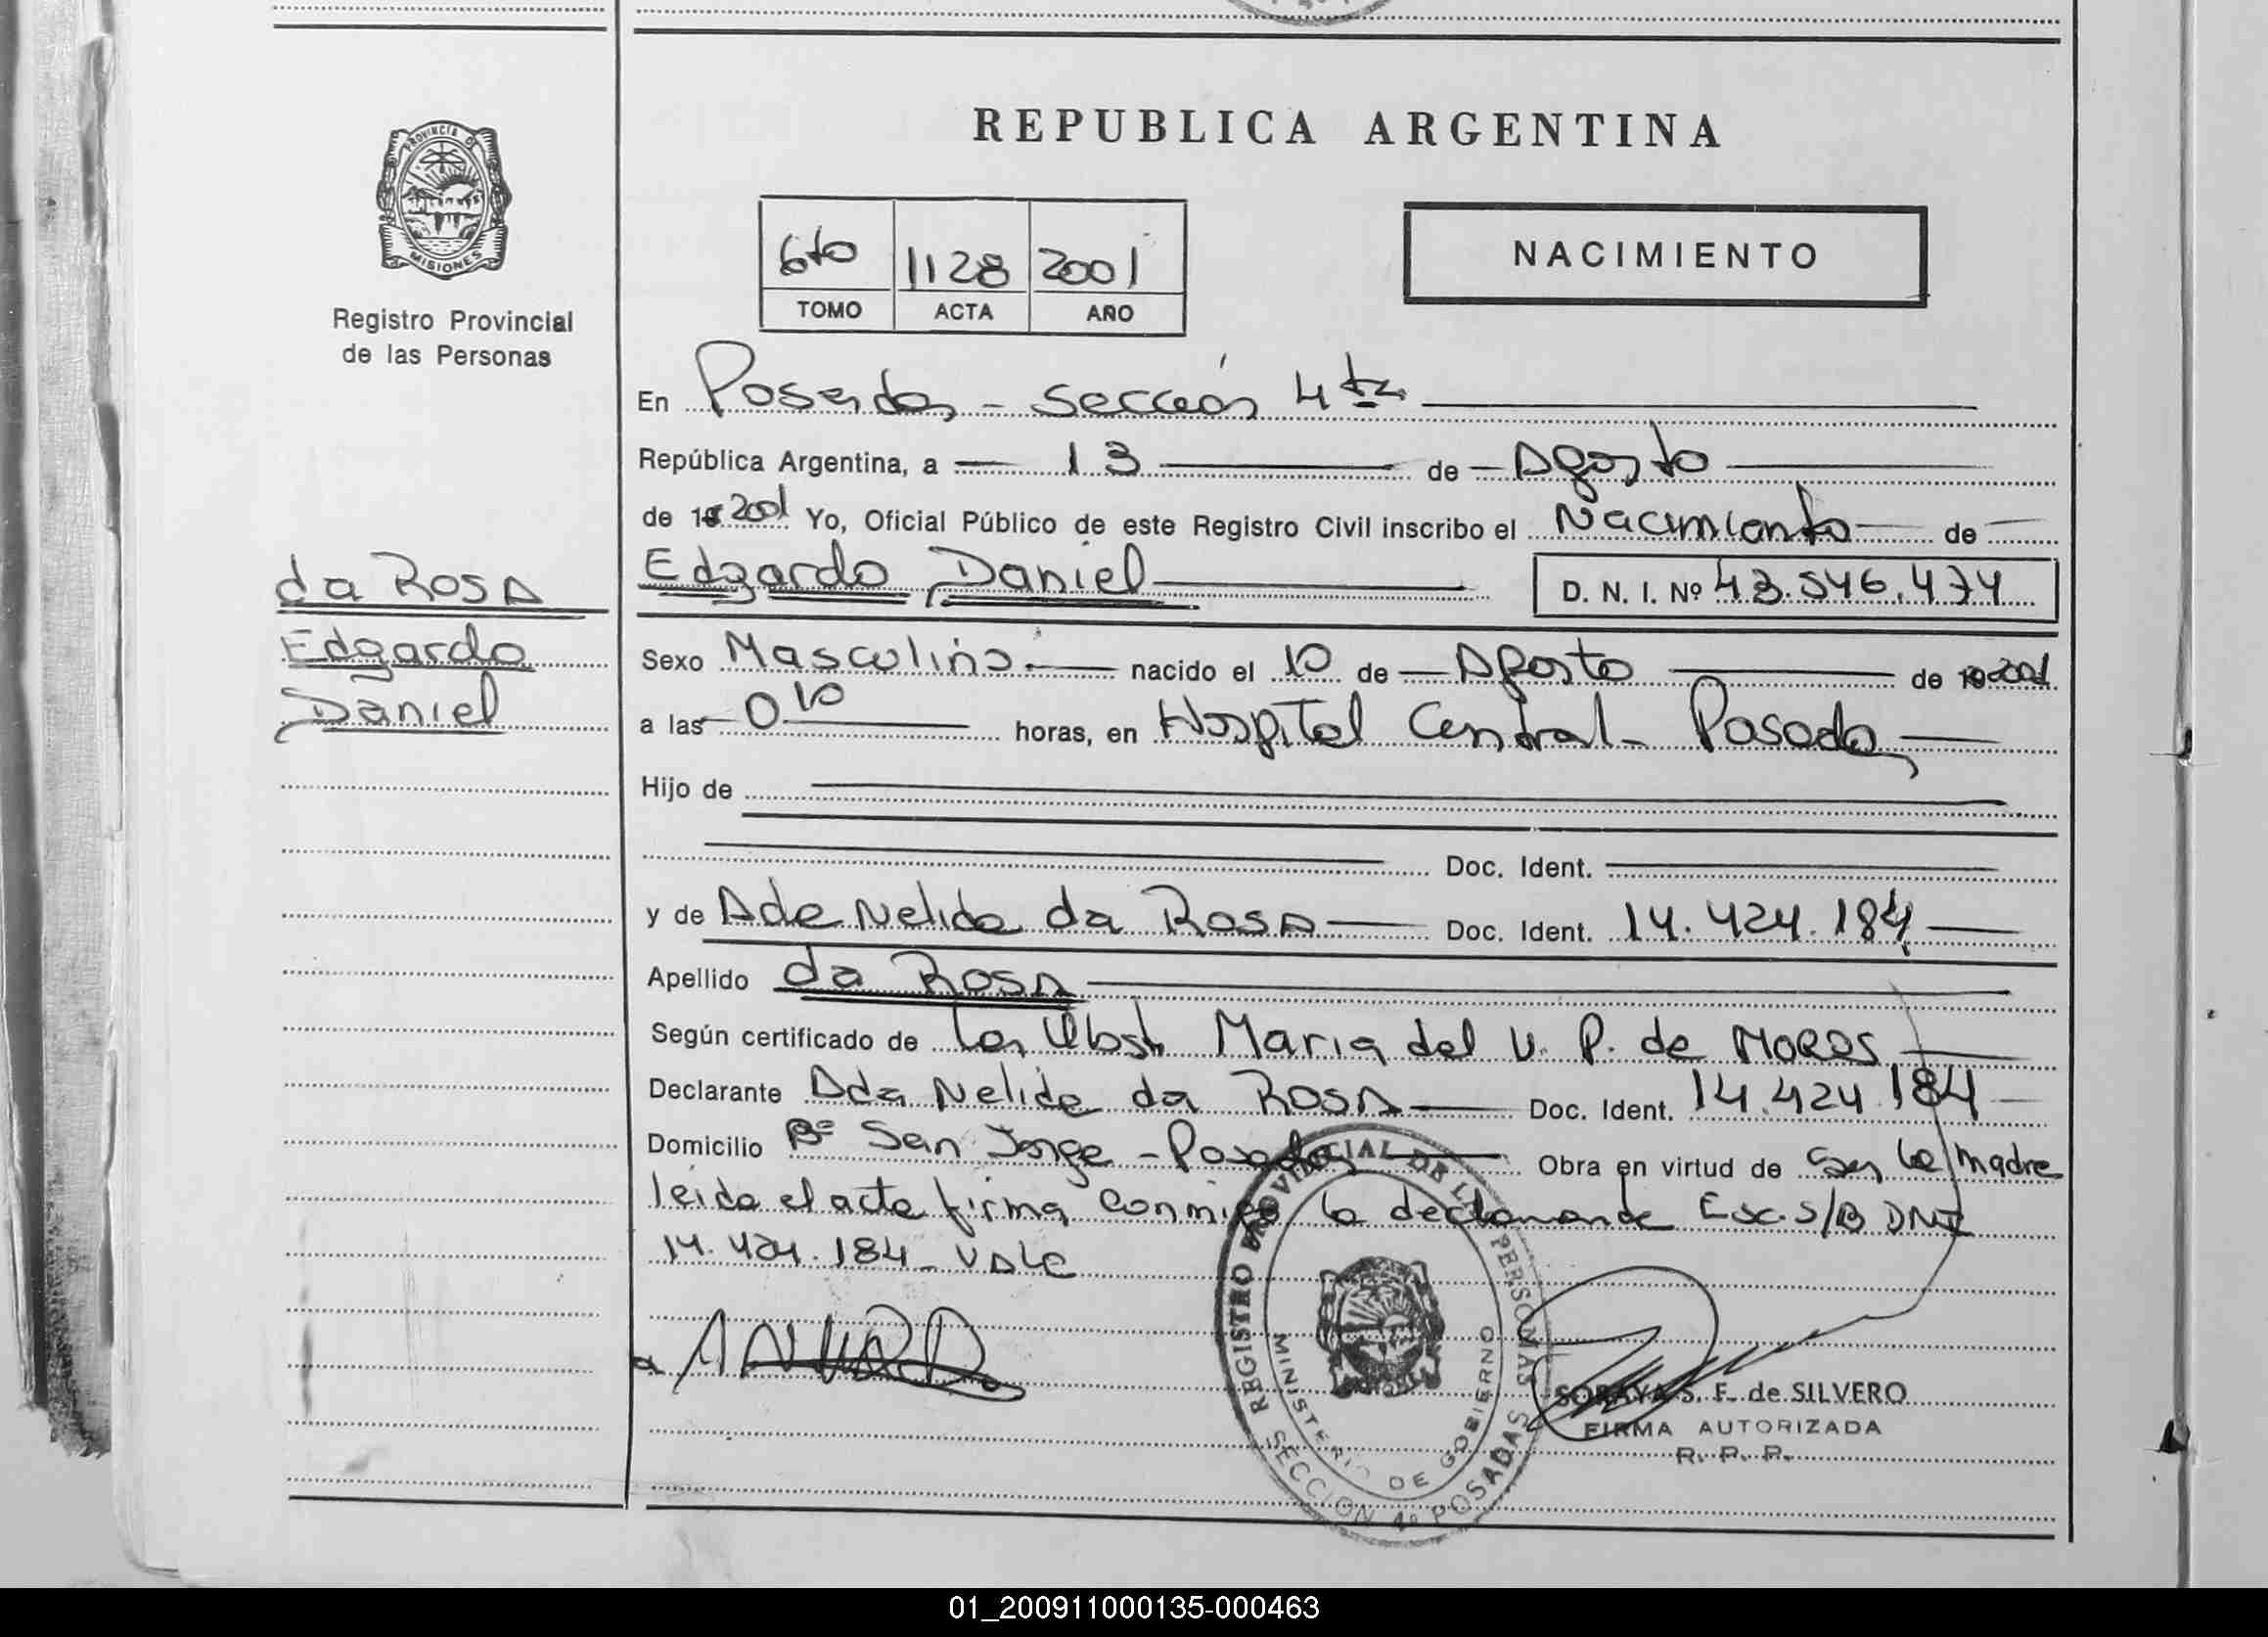 REPUBLICA ARGENTINA
PROVINCIA DE
MISIONES
Registro Provincial
de las Personas
6to 1128 2001
TOMO ACTA AÑO
NACIMIENTO
En Posadas - sección 4ta
República Argentina, a 13 de Agosto
de 2001 Yo, Oficial Público de este Registro Civil inscribo el Nacimiento de
Edgardo Daniel D. N. I. Nº 43.546.474
da Rosa
Edgardo
Daniel
Sexo Masculino nacido el 10 de Agosto de 2001
a las 0 10 horas, en Hospital Central - Posadas
Hijo de
Doc. Ident.
y de Ada Nelida da Rosa Doc. Ident. 14.424.184
Apellido da Rosa
Según certificado de la Obst. Maria del V. P. de Mores
Declarante Ada Nelida da Rosa Doc. Ident. 14.424.184
Domicilio Bº San Jorge - Posadas Obra en virtud de Ser la madre
leida el acta firma conmigo la declarante Esc. S/B DNI
14.424.184 - VALE
REGISTRO PROVINCIAL DE LAS PERSONAS
MINISTERIO DE GOBIERNO
SECCION 4º POSADAS
SORAYA S. F. de SILVERO
FIRMA AUTORIZADA
R. P. P.
01_200911000135-000463